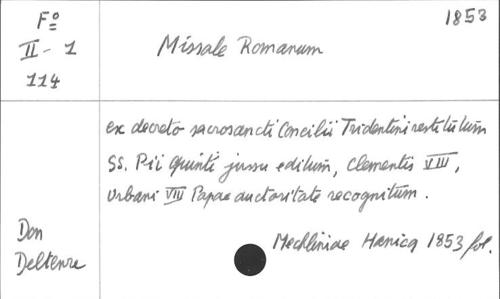 Fº
II - 1
114
1853
Missale Romanum
ex decreto sacrosancti Concilii Tridentini restitutum
SS. Pii Quinti jussu editum, Clementis VIII,
Urbani VIII Papae auctoritate recognitum.
Don
Deltenre
Mechliniae Hanicq 1853 fol.